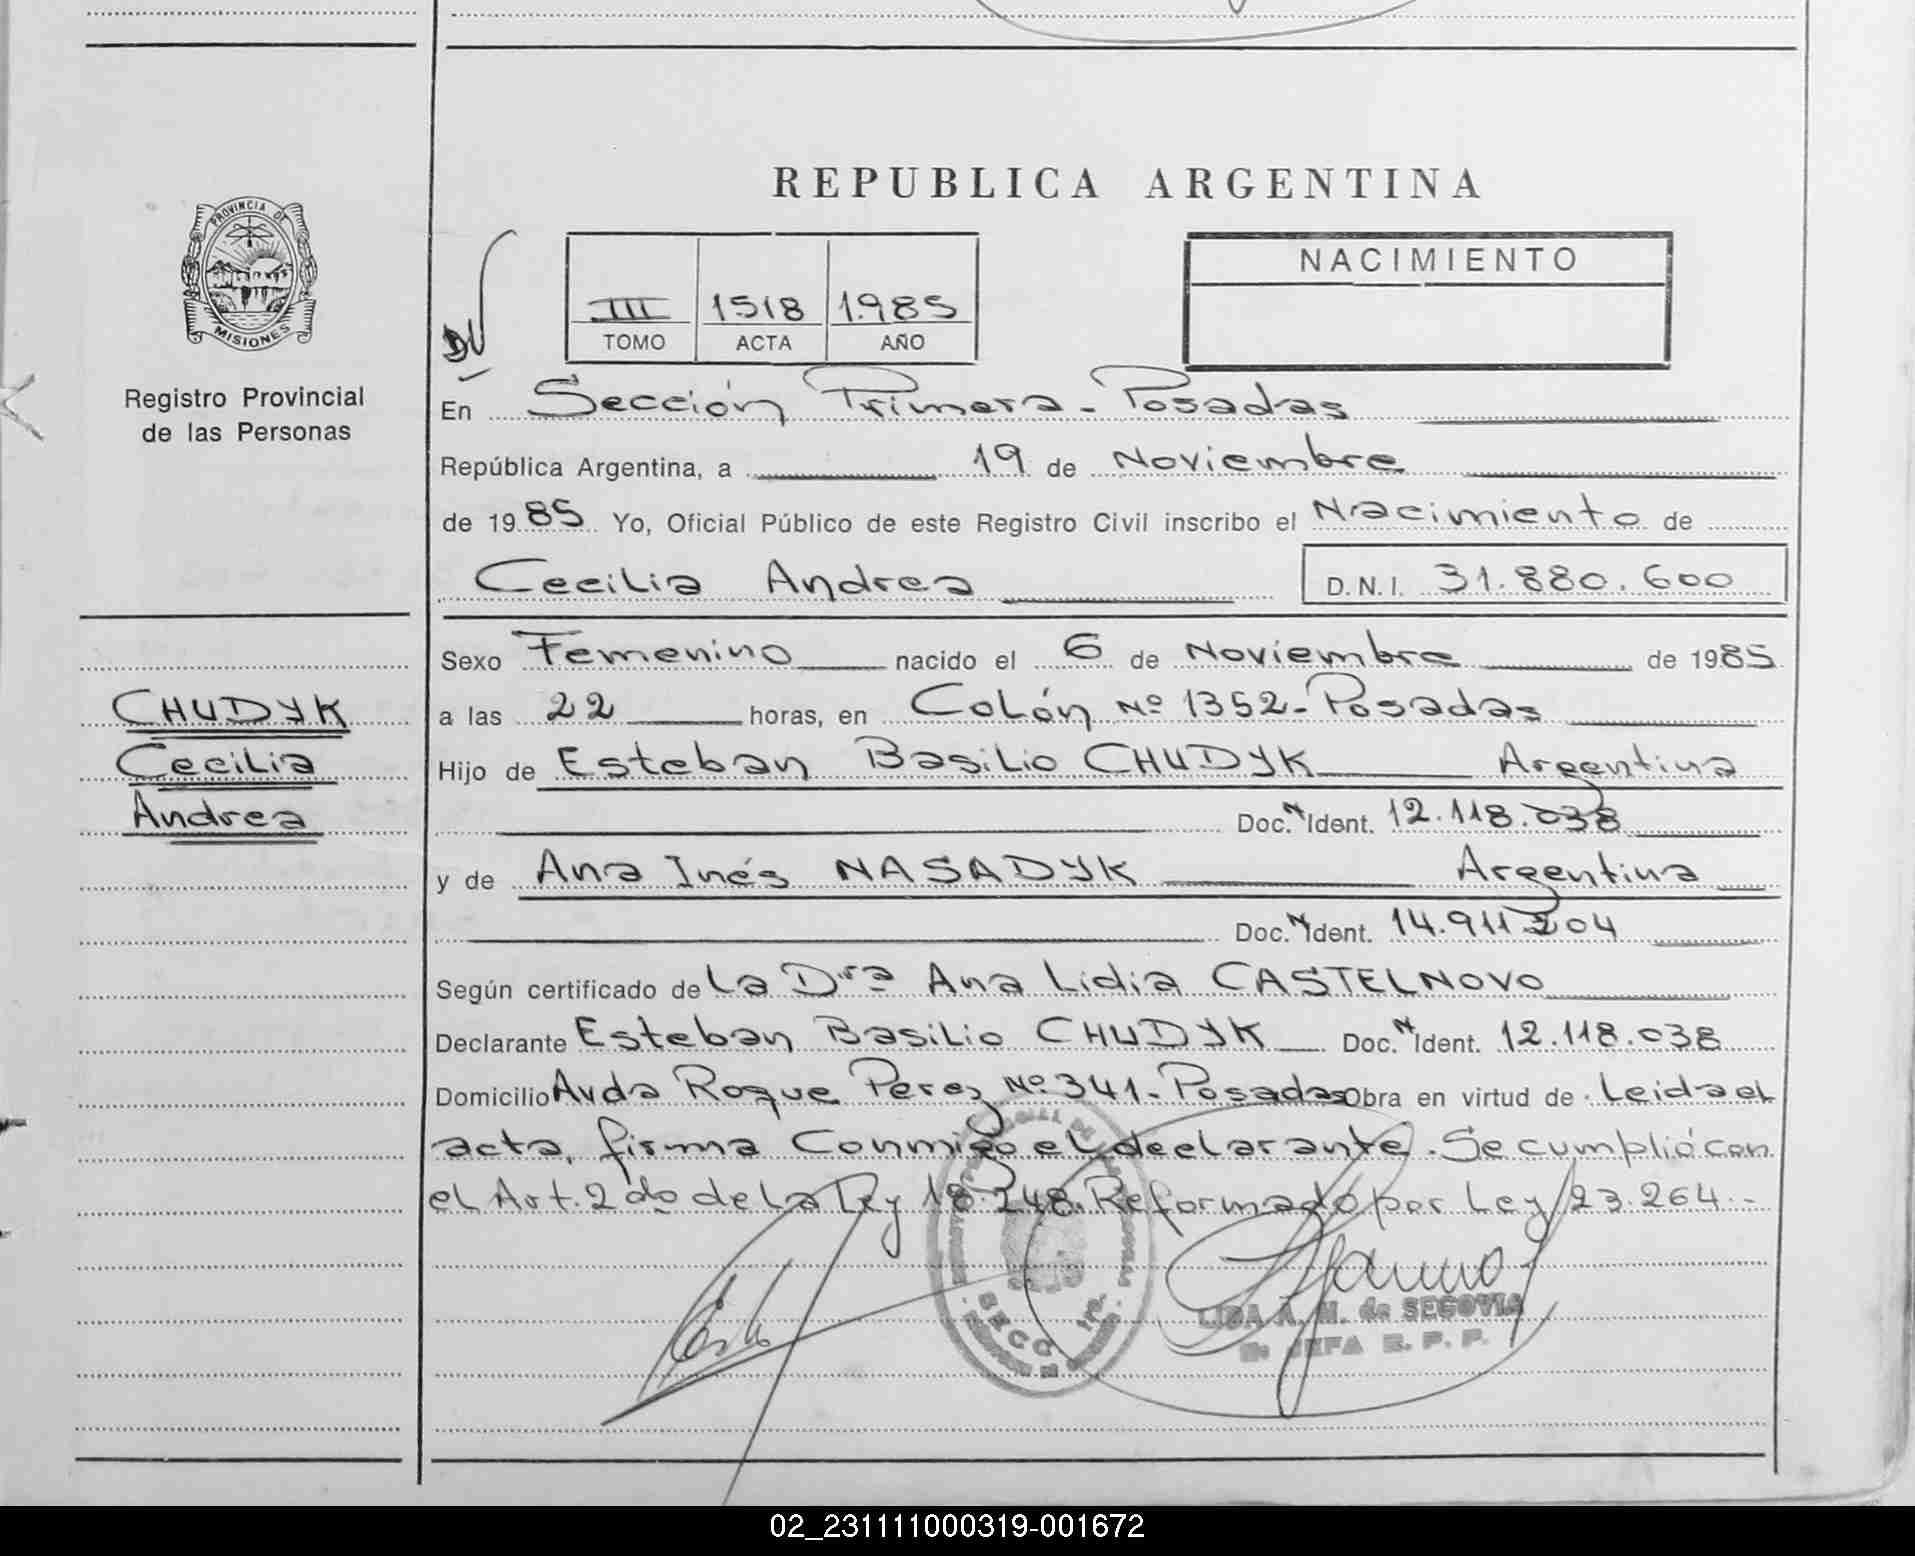 REPUBLICA ARGENTINA
PROVINCIA DE
MISIONES
Registro Provincial
de las Personas
III 1518 1.985
TOMO ACTA AÑO
NACIMIENTO
En Sección Primera - Posadas
República Argentina, a 19 de Noviembre
de 1985 Yo, Oficial Público de este Registro Civil inscribo el Nacimiento de
Cecilia Andrea D.N.I. 31.880.600
Sexo Femenino nacido el 6 de Noviembre de 1985
CHUDYK
Cecilia
Andrea
a las 22 horas, en Colón Nº 1352 - Posadas
Hijo de Esteban Basilio CHUDYK Argentina
Doc. Ident. 12.118.038
y de Ana Inés NASADYK Argentina
Doc. Ident. 14.911.204
Según certificado de La Dra Ana Lidia CASTELNOVO
Declarante Esteban Basilio CHUDYK Doc. Ident. 12.118.038
Domicilio Avda Roque Perez Nº 341 - Posadas Obra en virtud de Leida el
acta, firma Conmigo el declarante. Se cumplió con
el Art. 2do de La Ley 18.248. Reformado por Ley 23.264.-
LIDA A. M. de SEGOVIA
JEFA R. P. P.
02_231111000319-001672